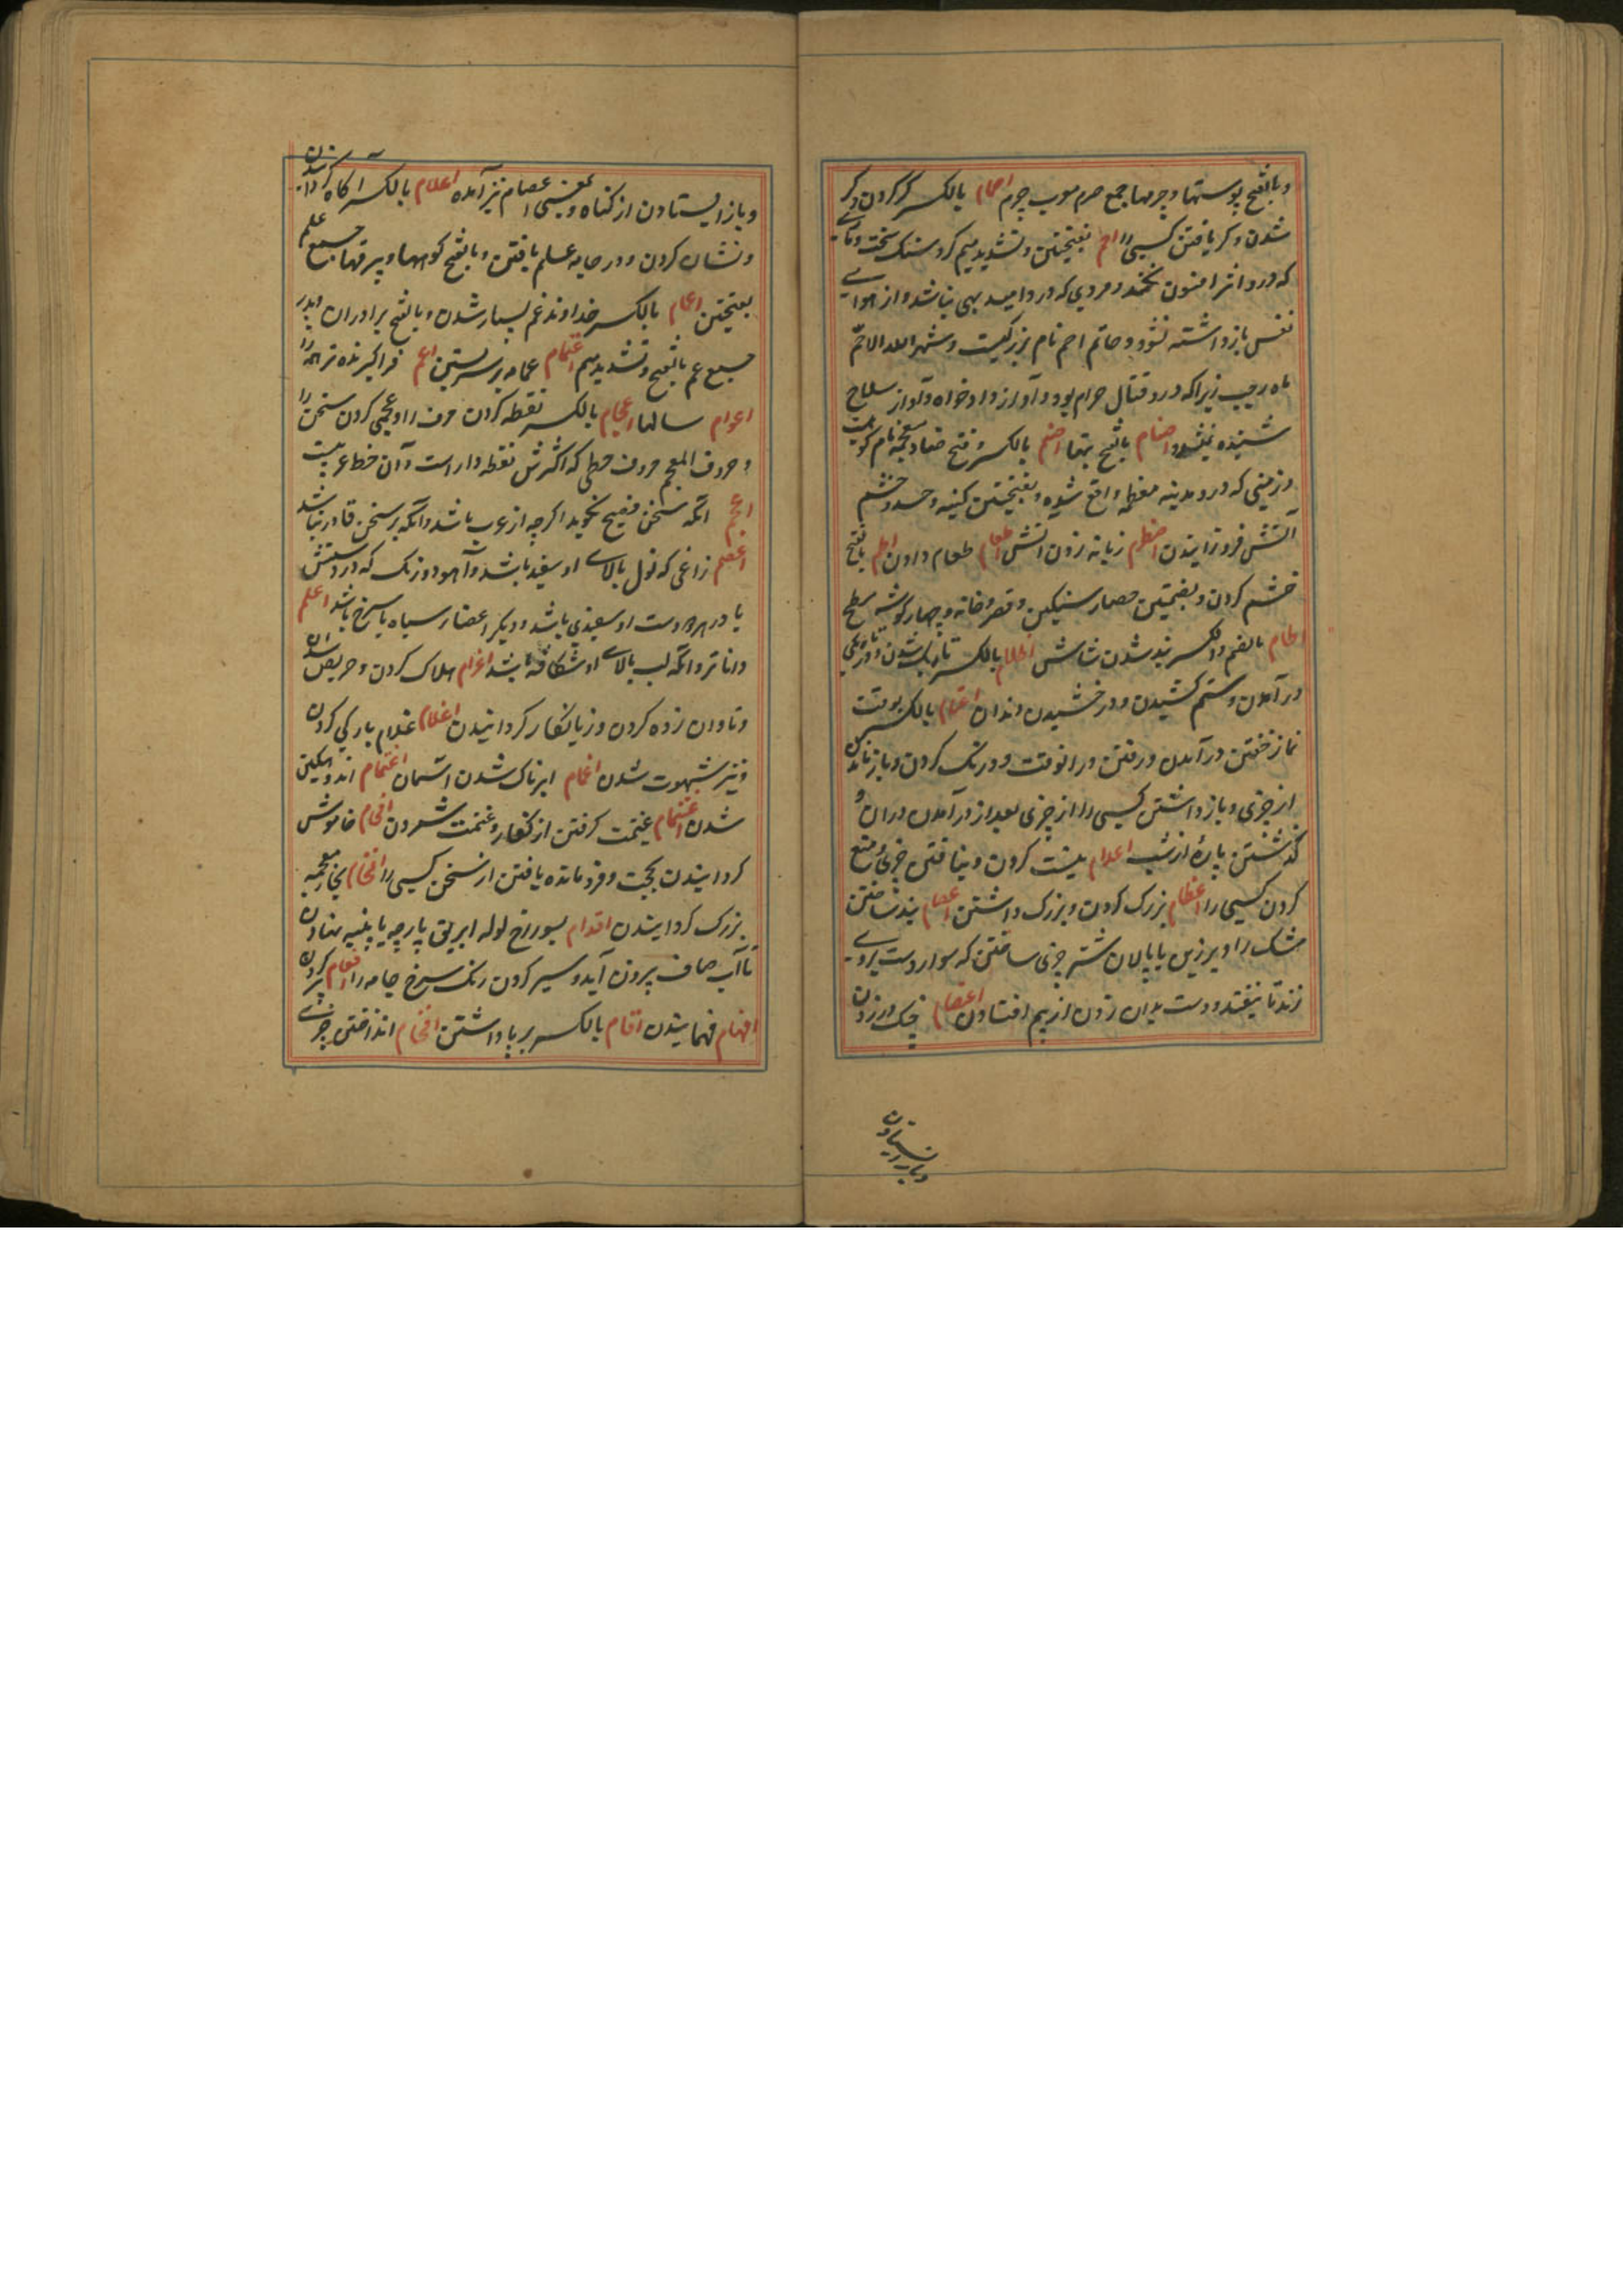 وبالفتح پوستها و چرمها جمع صرم معرب چرم اصمام بالکسر کر کردن و کر
شدن و کر یافتن کسی را اصم بفتحتین و تشدید میم کر و سنک سخت و
که درو اثر افسون نکند و مردی که درو امید بهی نباشد و از هوای
نفس بازداشته نشود و حاتم اصم نام بزرگیست و شهر الله الاصم
ماه رجب زیرا که درو قتال حرام بود و آواز داد خواه و آواز سلاح
شنیده نمیشد اصنام بالفتح بتها اضم بالکسر و فتح ضاد معجمه نام کوهیست
و زمینی که درو مدینه معظمه واقع شده و بفتحتین کینه و حسد و خشم
آتش فروزانیدن اضطرم زبانه زدن آتش اطعام طعام دادن اطم بالفتح
خشم کردن و بضمتین حصار سنکین و قصر و خانه چهار کوشه سطح
اطام بالضم والکسر بند شدن شاش اظلام بالکسر تاریک شدن و در تاریکی
در آمدن و ستم کشیدن و درخشیدن دندان اعتام بالکسر بوقت
نماز خفتن در آمدن و رفتن در انوقت و درنک کردن و باز ماندن
از چیزی و باز داشتن کسی را از چیزی بعد از در آمدن دران و
گذشتن پارهٔ از شب اعدام نیست کردن و نیافتن چیزی و منع
کردن کسی را اعظام بزرک کردن و بزرک داشتن اعصام بند ساختن
مشک را و بر زین یا پالان شتر چیزی ساختن که سوار دست بروی
زند تا نیفتد و دست بدان زدن از بیم افتادن اعتصام چنک در زدن
و باز ایستادن
و باز ایستادن از کناه و بمعنی اعصام نیز آمده اعلام بالکسر آکاه کردانیدن
و نشان کردن و در جامه علم بافتن و بالفتح کوهها و بیرقها جمع علم
بفتحتین اعمام بالکسر خداوند عم بسیار شدن و بالفتح برادران پدر
جمع عم بالفتح و تشدید میم اعتمام عمامه بر سر بستن اعم فرا کیرنده تر همه را
اعوام سالها اعجام بالکسر نقطه کردن حرف را و عجمی کردن سخن را
و حروف المعجم حروف خطی که اکثرش نقطه دار است و آن خط عربیست
اعجم انکه سخن فصیح نکوید اکرچه از عرب باشد و انکه بر سخن قادر نباشد
اعصم زاغی که نول بالای او سفید باشد و آهو و بزک که در دستش
یا در هر دو دست او سفیدی باشد و دیکر اعضا سیاه یا سرخ باشد اعلم
داناتر و انکه لب بالای او شکافته باشد اغرام هلاک کردن و حریص شدن
و تاوان زده کردن و زیانکار کردانیدن اغلام غلام بارکی کردن
و تیز شهوت شدن اغمام ابرناک شدن آسمان اغتمام اندوهکین
شدن اغتنام غنیمت کرفتن از کفار و غنیمت شمردن افحام خاموش
کردانیدن بحجت و فرو مانده یافتن از سخن کسی را افخام بخاء معجمه
بزرک کردانیدن افدام بسوراخ لوله ابریق پارچه یا پنبه نهادن
تا آب صاف بیرون آید و سیر کردن رنک سرخ جامه را افعام پر کردن
افهام فهمانیدن اقام بالکسر بر پا داشتن اقحام انداختن چیزی